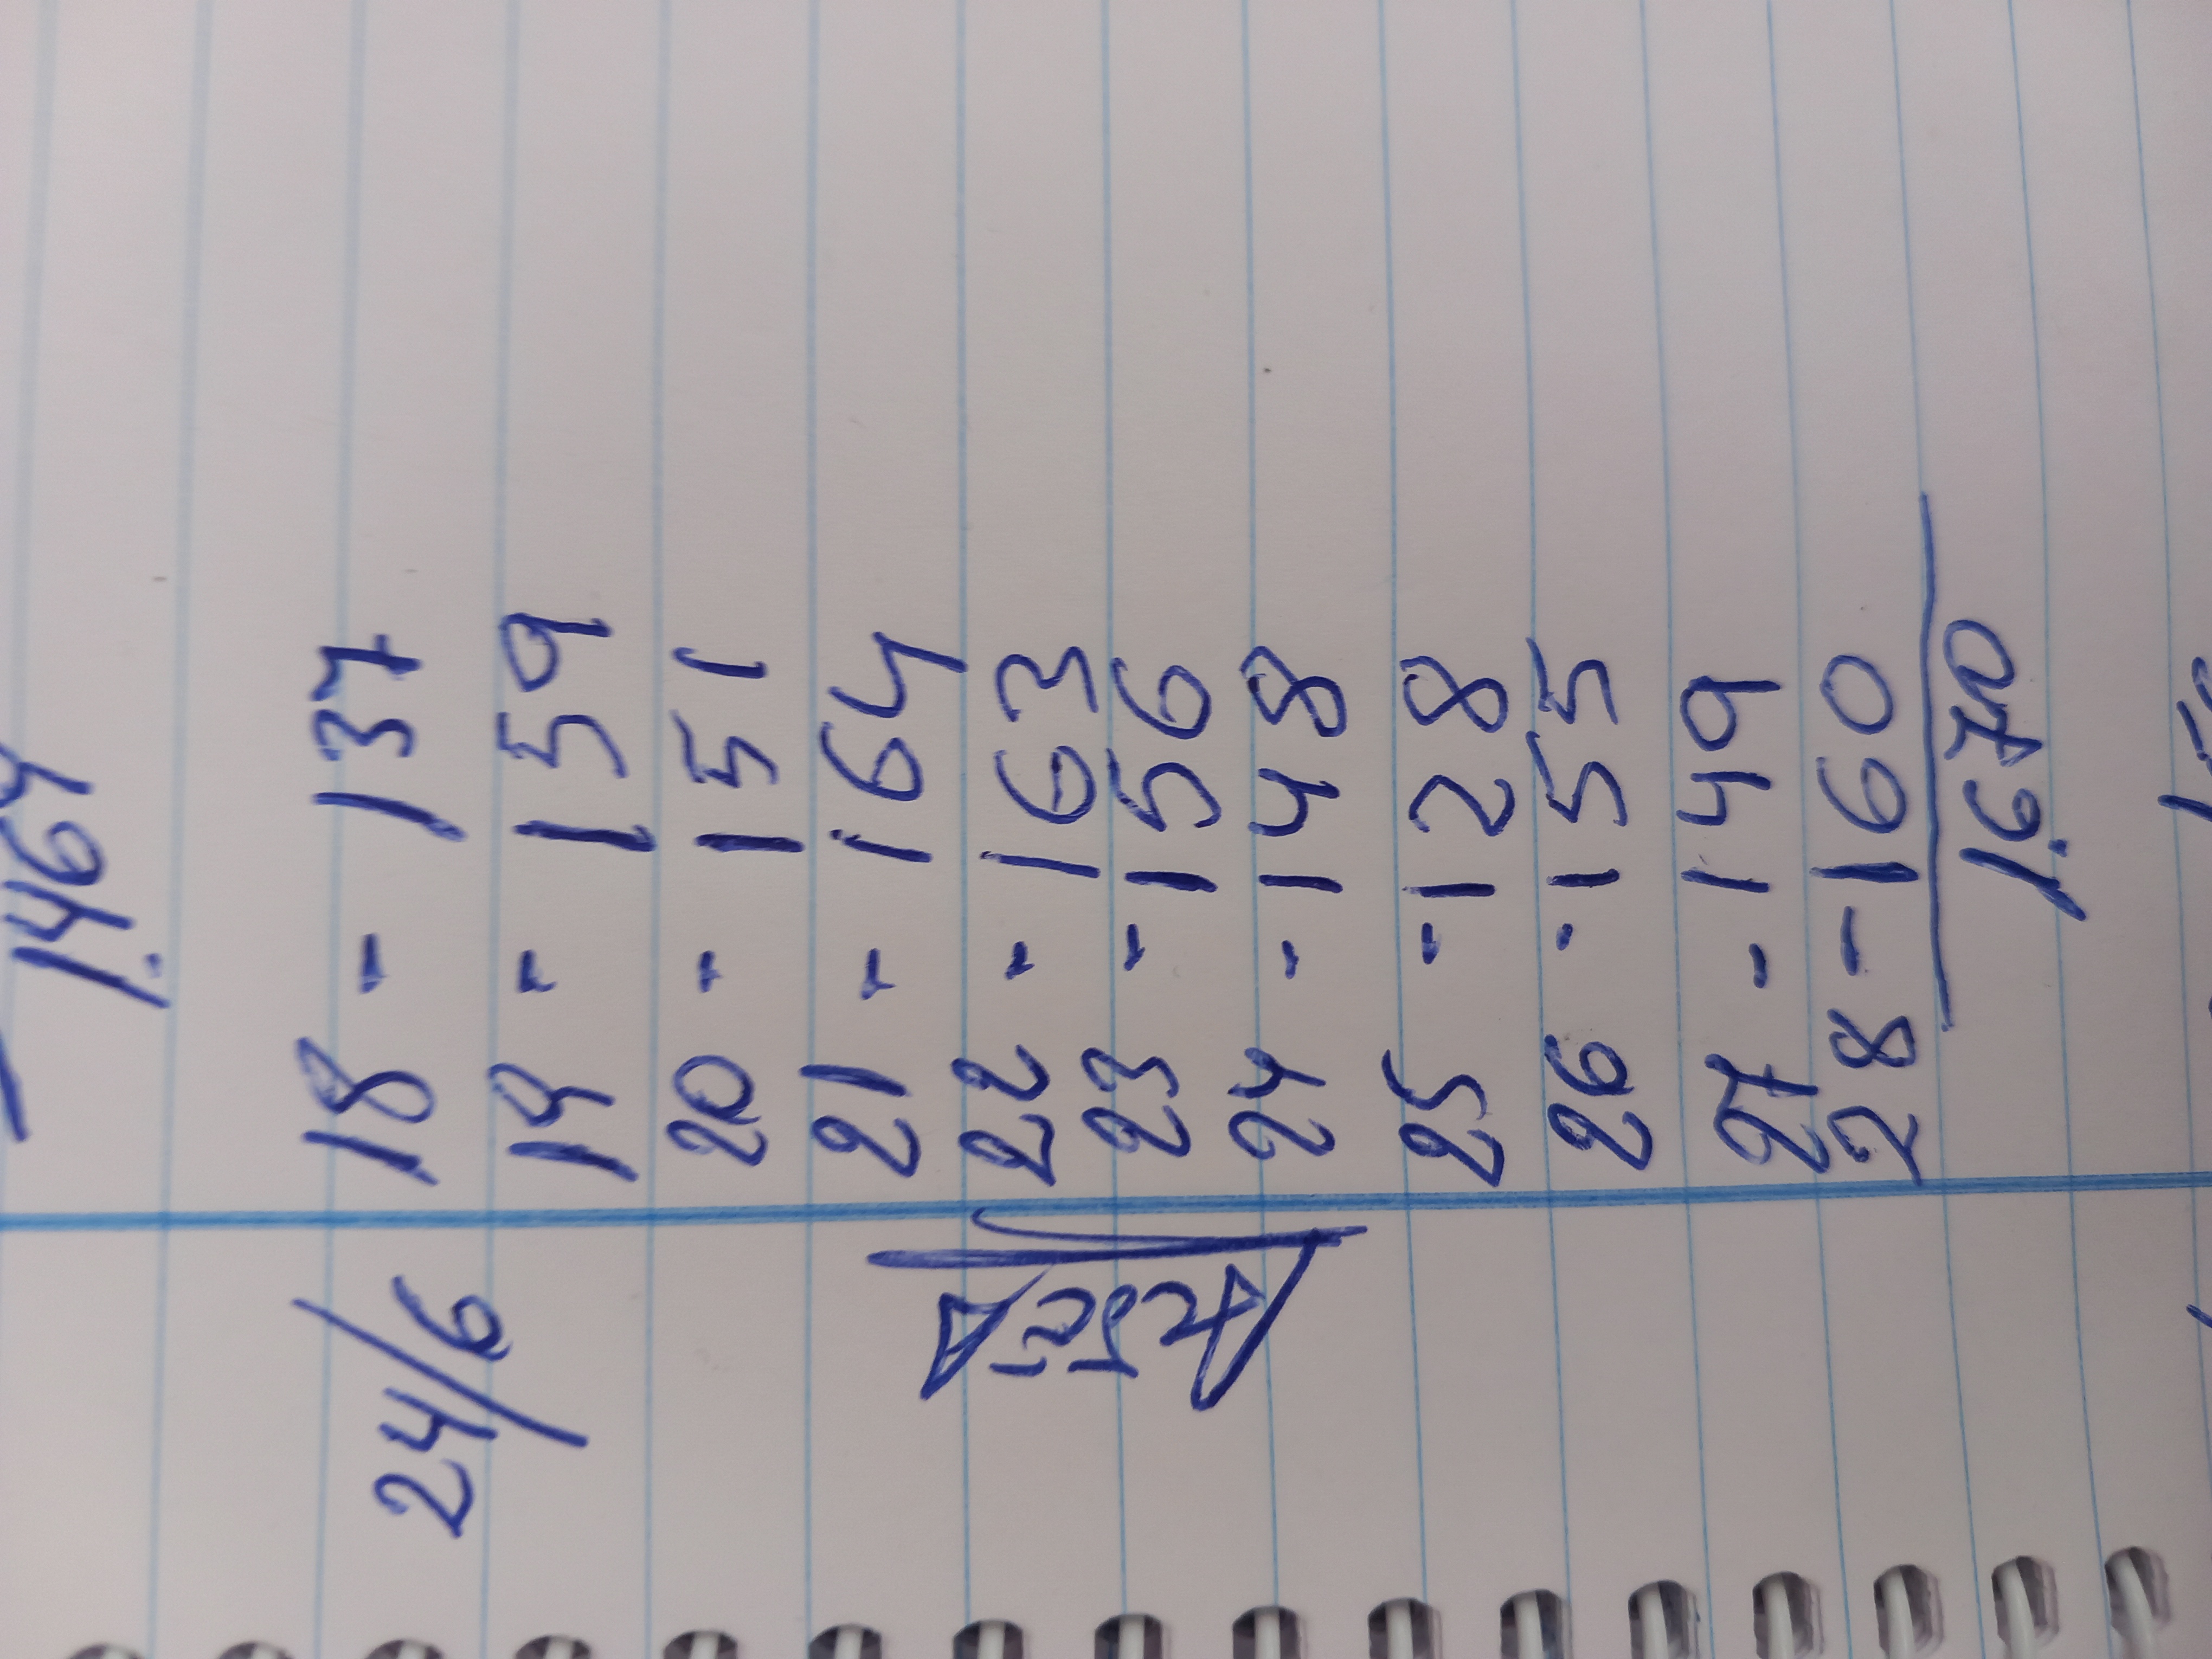 1,464
24/6 18 - 137
19 - 159
20 - 151
21 - 164
22 - 163
23 - 156
24 - 148
25 - 128
26 - 155
27 - 149
28 - 160
1,670